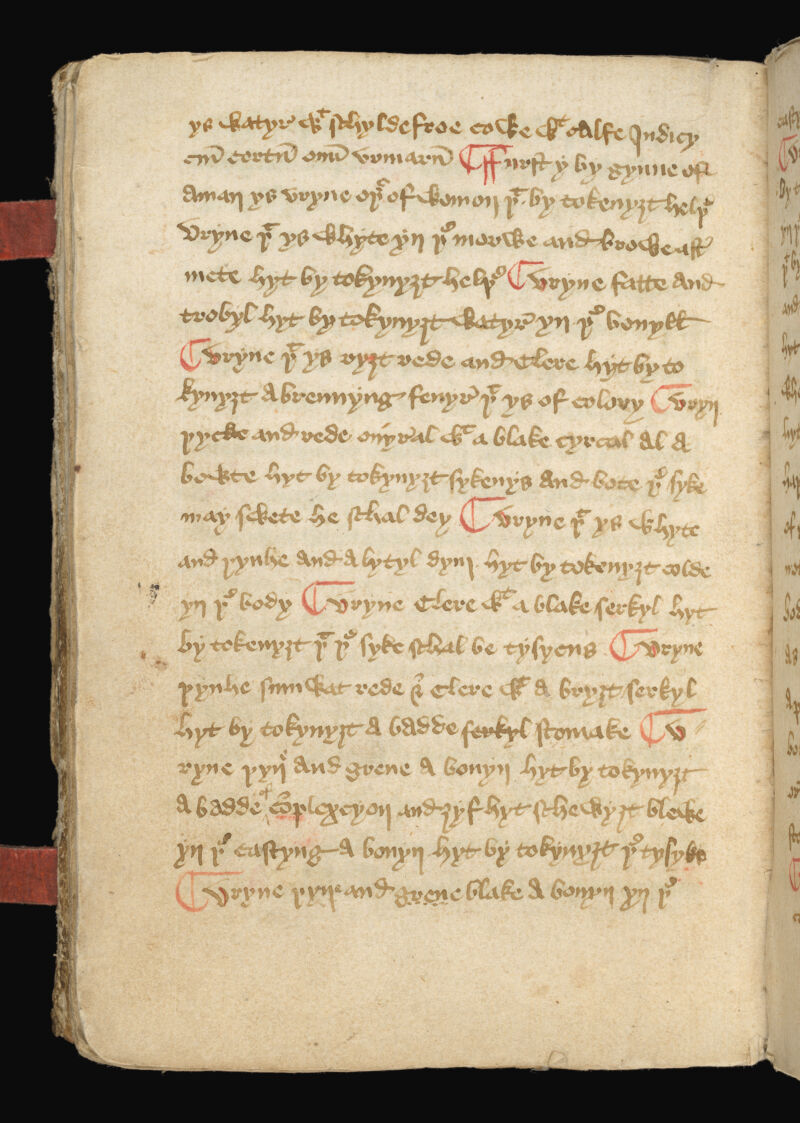 ys watyr wt schyldefroe cowe wt calfe Judicy
cuū certū oīū urinarū ¶ ffurst y by gynne of
a man ys vryne oþr of womon þt by tokenyȝt helþe
Vryne þt ys whyte yn þe morwe and browe aft
mete hyt by tokynyȝt helþe ¶ vryne fatte and
trobyl hyt by tokynyȝt watyr yn þe bouyll
¶ vryne þt ys ryȝt rede and clere hyt by to
kynyȝt a brennyng feuyr þt ys of colory ¶ vryn
þycke and rede ouyral wt a blake cyrcal al a
bowte hyt by tokynyȝt sykenys and bote þe syke
may swete he schal dey ¶ vryne þt ys whyte
and þynne and a lytyl dym hyt by tokenyȝt colde
yn þe body ¶ vryne clere wt a blake serkyl hyt
by tokenyȝt þt þe syke schal be tysyens ¶ vryne
þynne sumwat rede & clere wt a bryȝt serkyl
hyt by tokynyȝt a badde serkyl stomake ¶ v
ryne þyn and grene a bouyn hyt by tokynyȝt
a badde cōplexcyon and ȝyf hyt schewyȝt blewe
yn þe castyng a bouyn hyt by tokynyȝt þe tysyke
¶ Vryne þyn and grene blake a bouyn yn þe